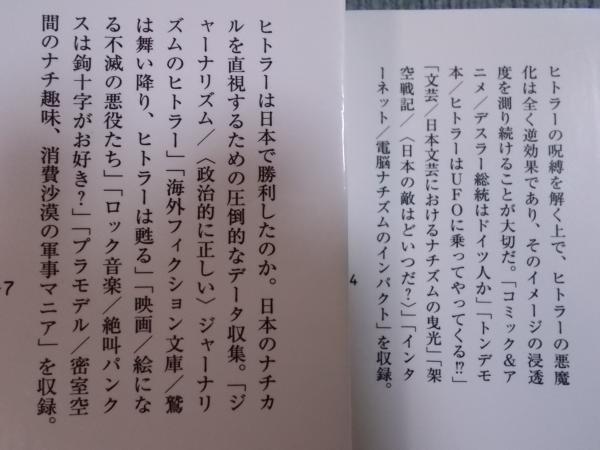 ヒトラーの呪縛を解く上で、ヒトラーの悪魔
化は全く逆効果であり、そのイメージの浸透
度を測り続けることが大切だ。「コミック&ア
ニメ/デスラー総統はドイツ人か」「トンデモ
本/ヒトラーはUFOに乗ってやってくる!?」
「文芸/日本文芸におけるナチズムの曳光」「架
空戦記/〈日本の敵はどいつだ?〉」「インタ
ーネット/電脳ナチズムのインパクト」を収録。
4
ヒトラーは日本で勝利したのか。日本のナチカ
ルを直視するための圧倒的なデータ収集。「ジ
ャーナリズム/〈政治的に正しい〉ジャーナリ
ズムのヒトラー」「海外フィクション文庫/鷲
は舞い降り、ヒトラーは甦る」「映画/絵にな
る不滅の悪役たち」「ロック音楽/絶叫パンク
スは鉤十字がお好き?」「プラモデル/密室空
間のナチ趣味、消費沙漠の軍事マニア」を収録。
7